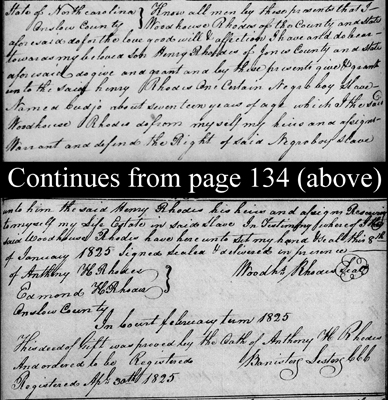 State of North carolina } Know all men by these presents that I
Onslow County } Woodhouse Rhodes of the County and State
aforesaid for the love good will & affection I have and do bear
towards my beloved son Henry Rhodes of Jones County and state
aforesaid do give and grant and by these presents give & grant
unto the said henry Rhodes One Certain Negro boy Slave
Named Cudjo about seventeen years of age which I the said
Woodhouse Rhodes do from myself my heirs and assigns
Warrant and defend the Right of said Negro boy Slave
Continues from page 134 (above)
unto him the said Henry Rhodes his heirs and assigns Reserving
to myself my Life Estate in said Slave In Testimony whereof I the
said Woodhouse Rhodes have here unto set my hand & seal this 8th
of January 1825 Signed sealed & delivered in presence
of Anthony H Rhodes } Woodhs Rhodes Seal
Edmond H Rhodes
Onslow County
In Court february term 1825
This deed of Gift was proved by the Oath of Anthony H Rhodes
And ordered to be Registered Banister Lester
Registered Apl 30th 1825